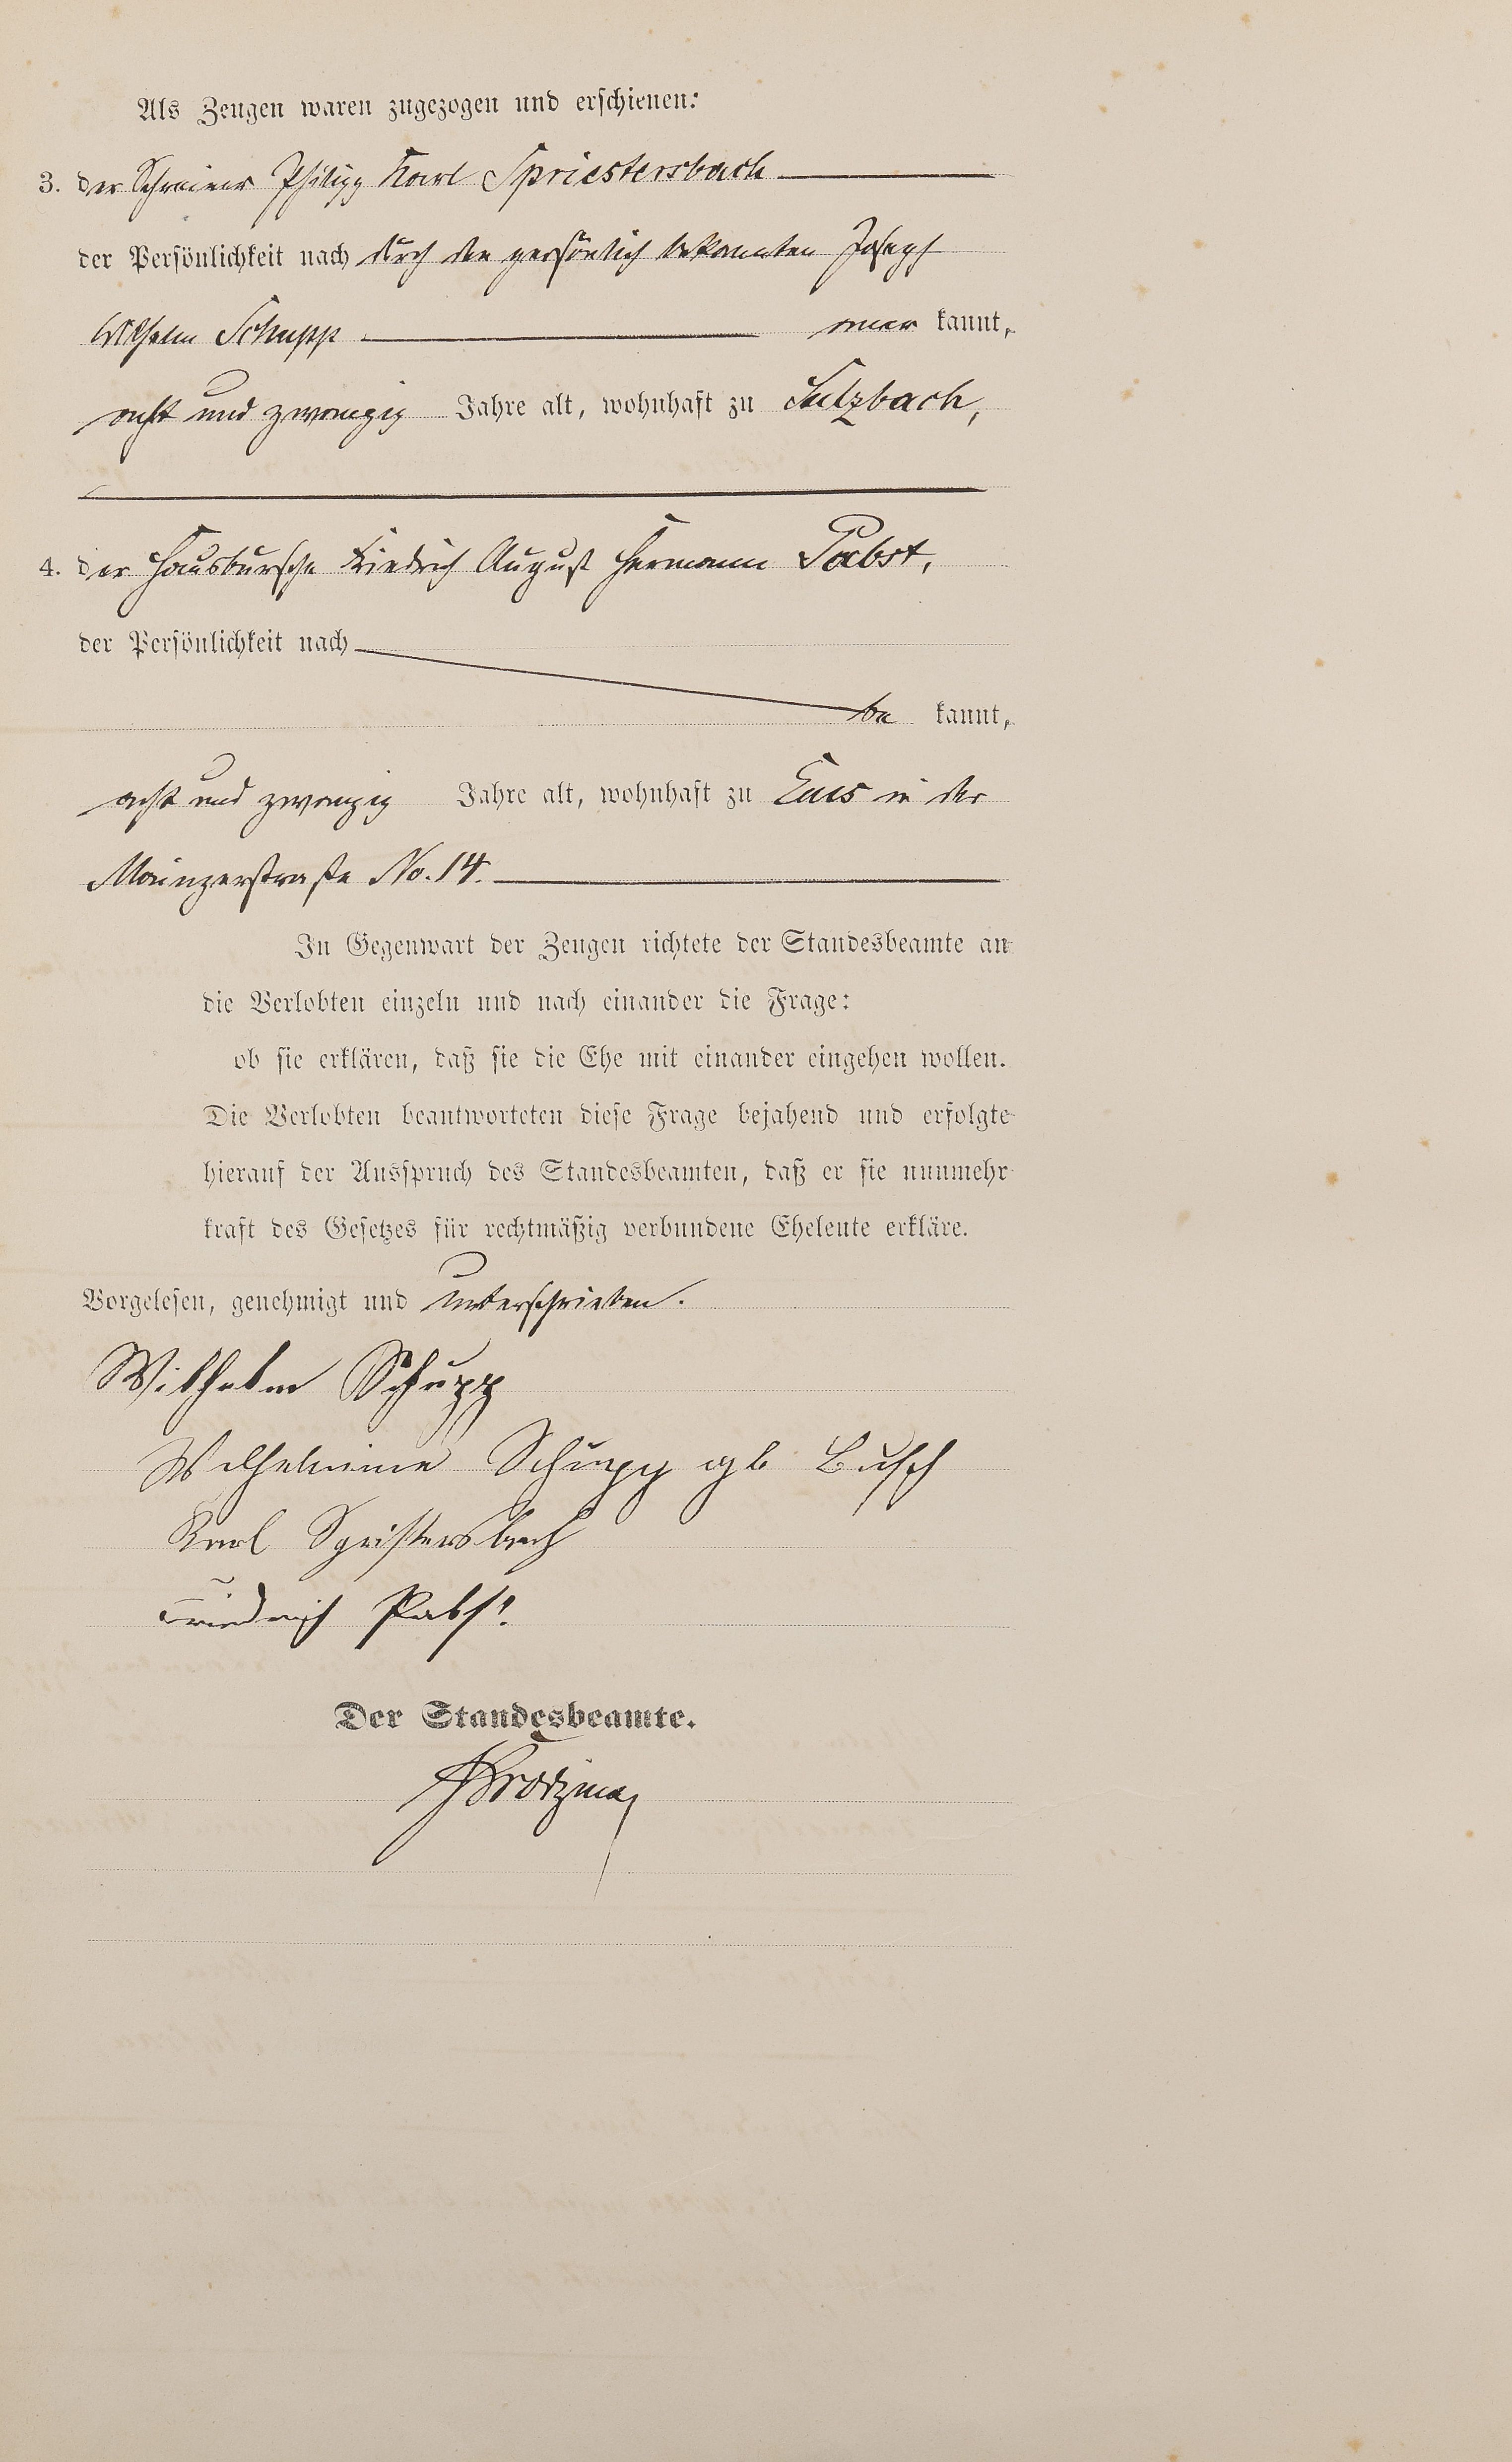 Als Zeugen waren zugezogen und erschienen:
3. der Schreiner Philipp Karl Spriestersbach
der Persönlichkeit nach durch den persönlich bekannten Joseph
Wilhelm Schupp aner kannt,
acht und zwanzig Jahre alt, wohnhaft zu Sulzbach,
4. der Hausbursche Friedrich August Hermann Pabst,
der Persönlichkeit nach
be kannt,
acht und zwanzig Jahre alt, wohnhaft zu Ems in der
Mainzerstraße No. 14.
In Gegenwart der Zeugen richtete der Standesbeamte an
die Verlobten einzeln und nach einander die Frage:
ob sie erklären, daß sie die Ehe mit einander eingehen wollen.
Die Verlobten beantworteten diese Frage bejahend und erfolgte
hierauf der Ausspruch des Standesbeamten, daß er sie nunmehr
kraft des Gesetzes für rechtmäßig verbundene Eheleute erkläre.
Vorgelesen, genehmigt und unterschrieben.
Wilhelm Schupp
Wilhelmine Schupp gb Busch
Karl Spristersbach
Friedrich Pabst.
Der Standesbeamte.